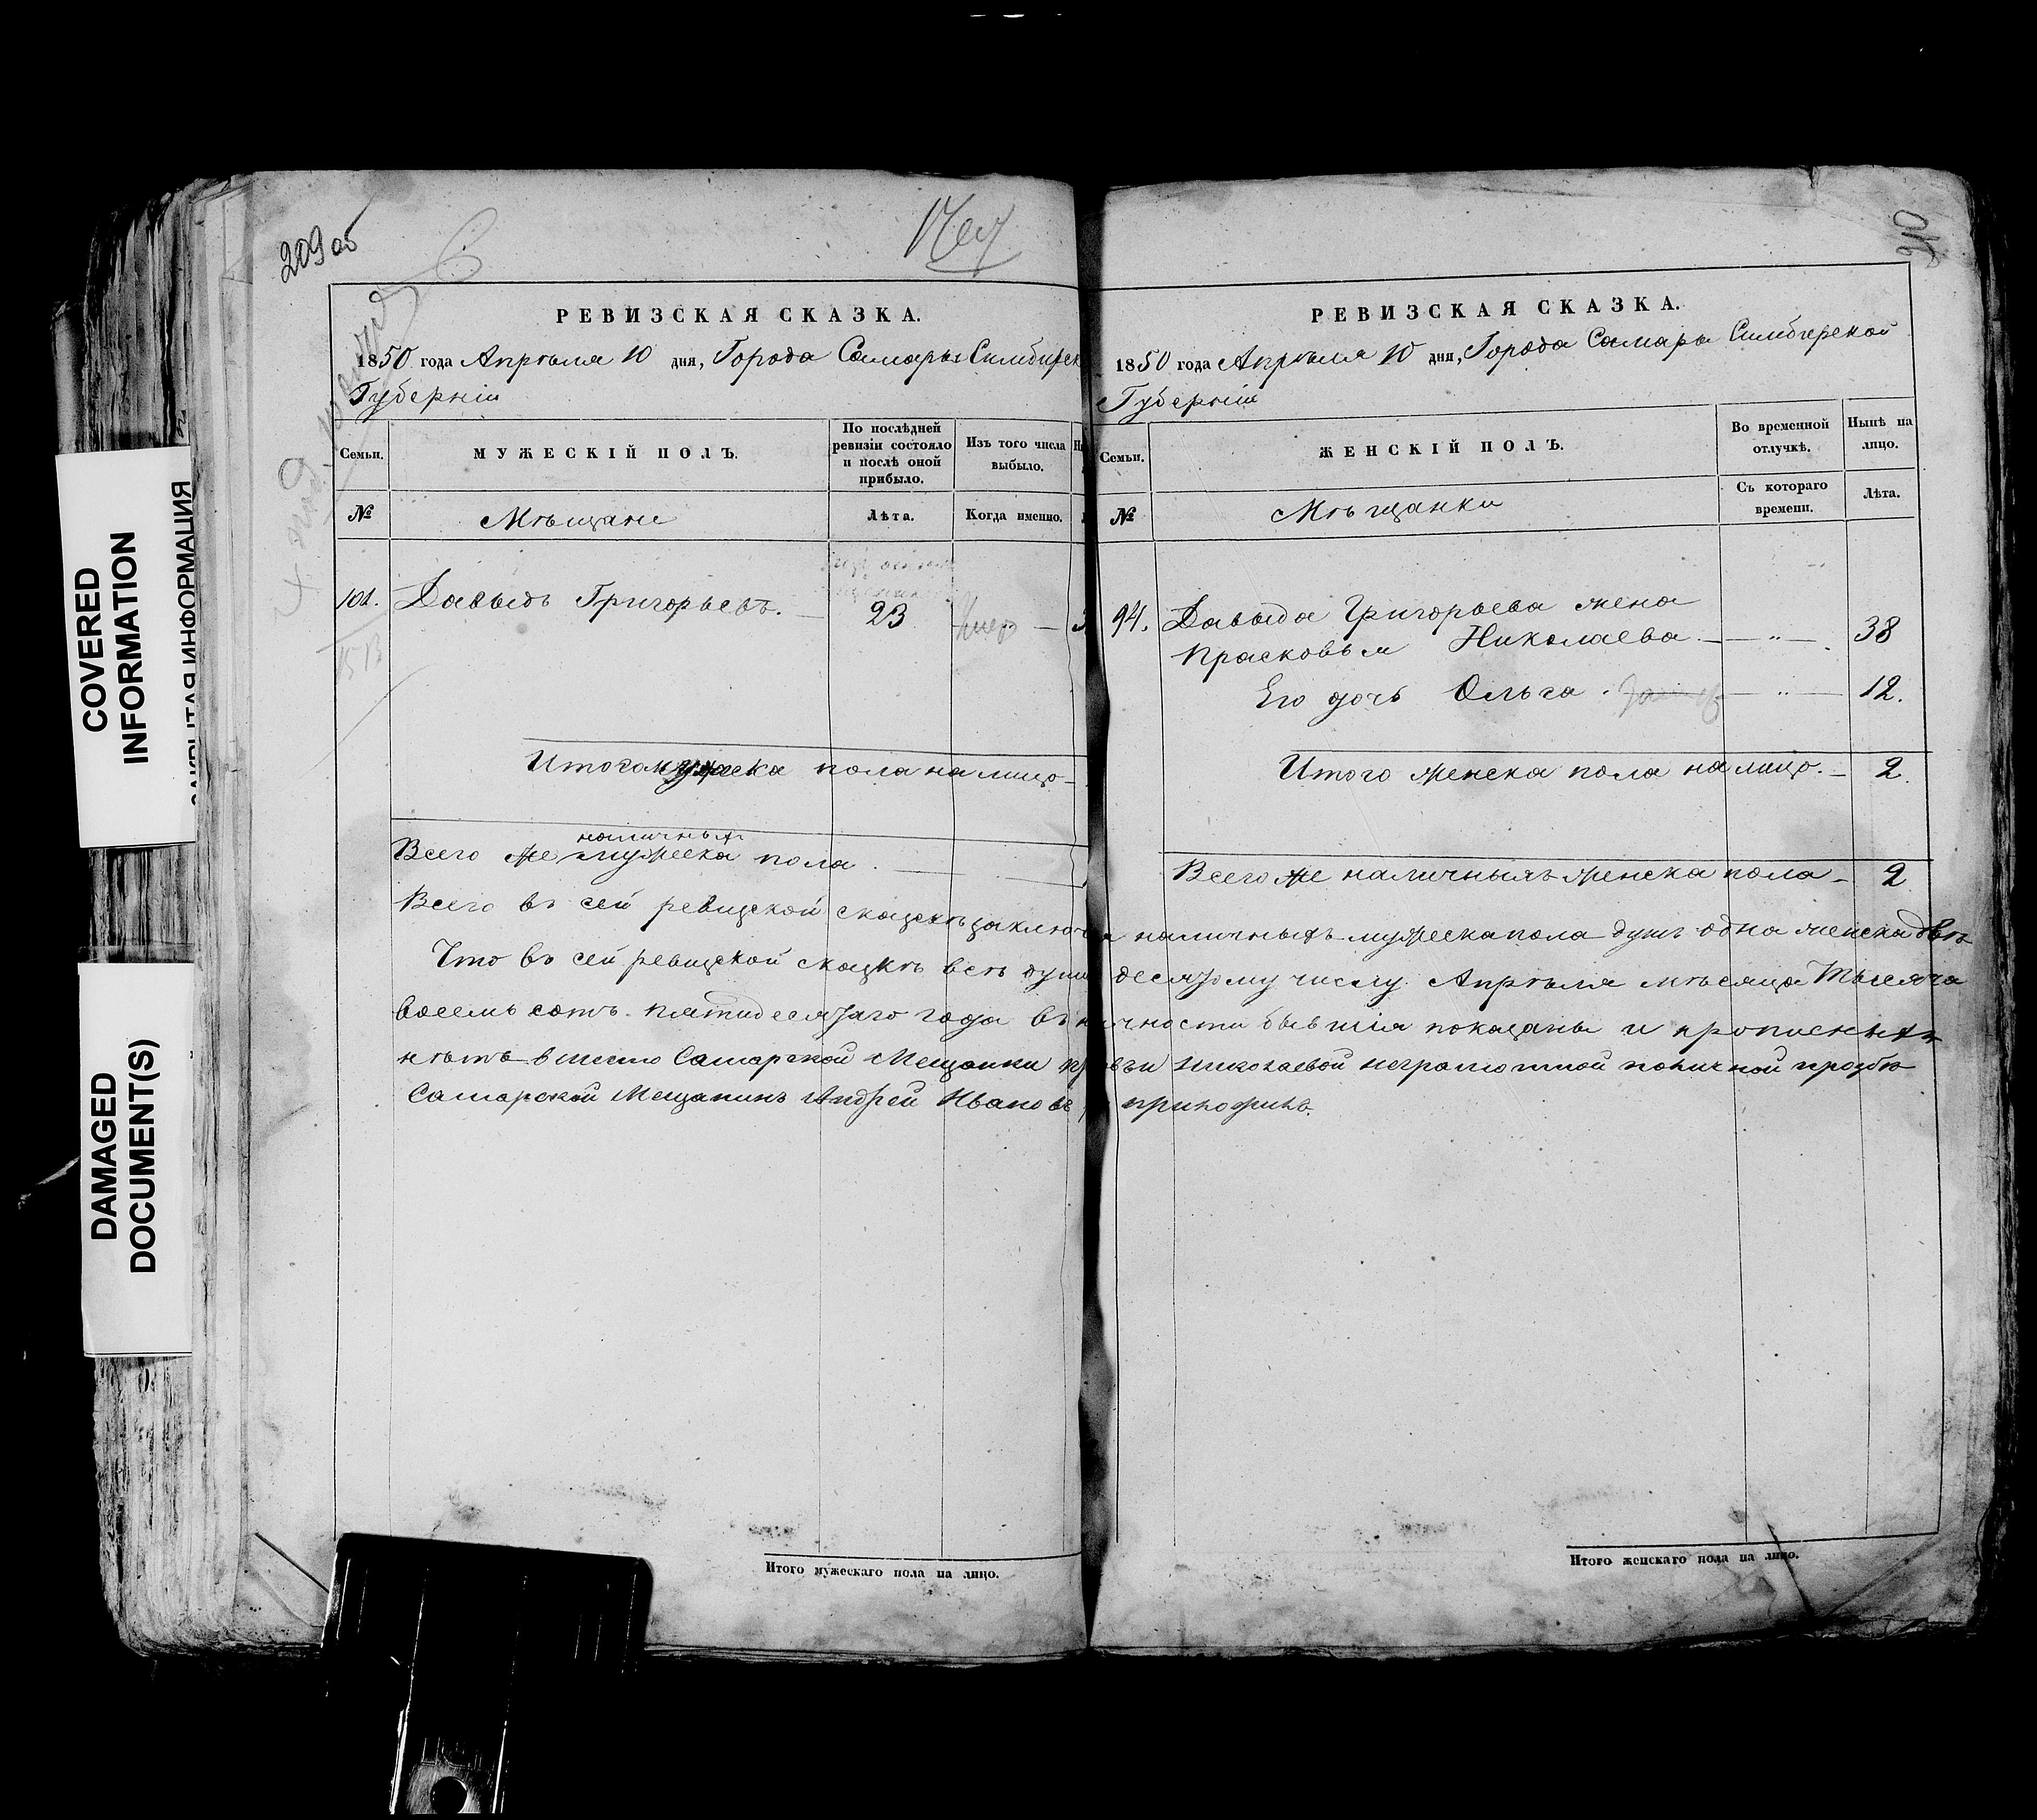 COVERED
INFORMATION
ЗАКРЫТАЯ ИНФОРМАЦИЯ
DAMAGED
DOCUMENT(S)
209 об
РЕВИЗСКАЯ СКАЗКА.
1850 года Апрѣля 10 дня, Города Самары Симбирск
Губерніи
Семьи.
МУЖЕСКІЙ ПОЛЪ.
По послѣдней
ревизіи состояло
и послѣ оной
прибыло.
Изъ того числа
выбыло.
№
Мѣщане
Лѣта.
Когда именно.
101. Давыдъ Григорьевъ. 23
Итого мужеска пола на лицо
наличныхъ
Всего же мужеска пола
РЕВИЗСКАЯ СКАЗКА.
1850 года Апрѣля 10 дня, Города Самары Симбирской
Губерніи
Семьи.
ЖЕНСКІЙ ПОЛЪ.
Во временной
отлучкѣ.
Нынѣ на
лицо.
№
Мѣщанки
Съ котораго
времени.
Лѣта.
94. Давыда Григорьева жена
Прасковья Николаева — „ — 38
Его дочь Ольга. — „ — 12.
Итого женска пола на лицо. — 2.
Всего же наличныхъ женска пола — 2
Всего въ сей ревизской сказкѣ заключ наличныхъ мужеска пола душъ одна женска двѣ
Что въ сей ревизской сказкѣ всѣ души десятому числу Апрѣля мѣсяца Тысяча
восемь сотъ пятидесятаго года въ ичности бывшія показаны и прописныхъ
нѣтъ вместо Самарской Мещанки вьи Николаевой неграмотной поличной прозбѣ
Самарской Мещанинъ Андрей Иванов
Итого мужескаго пола на лицо.
Итого женскаго пола на лицо.